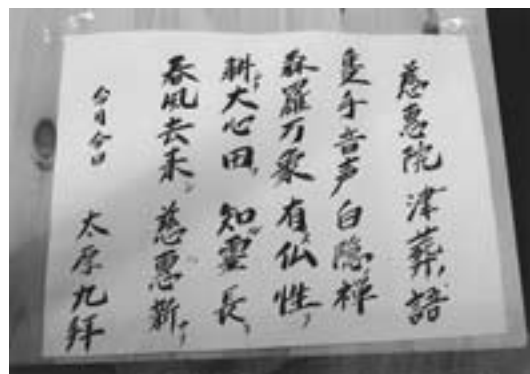 慈恵院津葬語
隻手音声白隠禅
森羅万象有仏性
耕大心田知霊長
春風去来慈恵新
今月今日 太原九拝